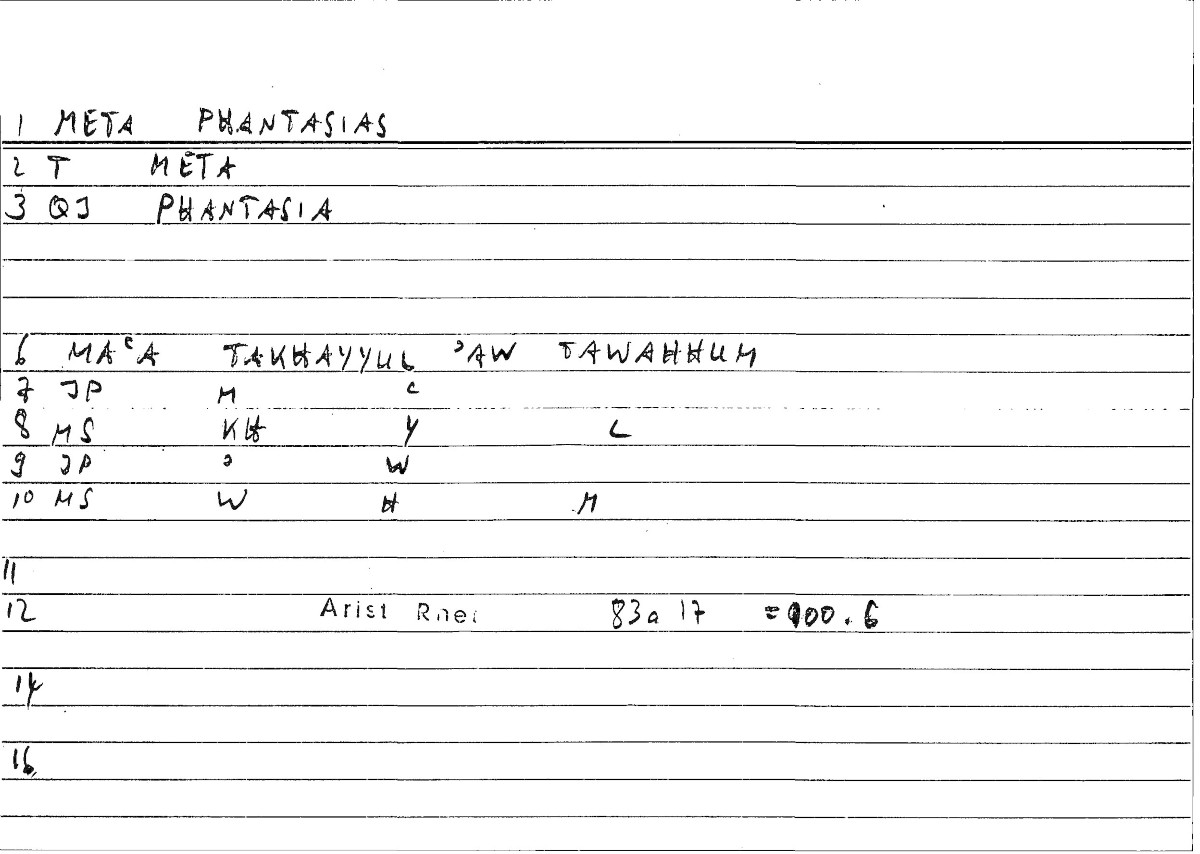 1 META PHANTASIAS
2 T META
3 QJ PHANTASIA
6 MAʿA TAKHAYYUL ʾAW TAWAHHUM
7 JP M ʿ
8 MS KH Y L
9 JP ʾ W
10 MS W H M
11
12 Arist Rhet 83a 17 =100.6
14
16